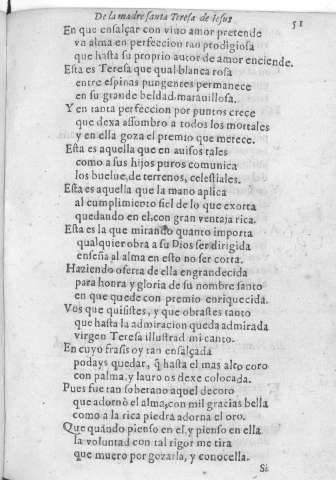 De la madre santa Teresa de Iesus
51
En que ensalçar con viuo amor pretende
vn alma en perfeccion tan prodigiosa
que hasta su proprio autor de amor enciende.
Esta es Teresa que qual blanca rosa
entre espinas pungentes permanece
en su grande beldad marauillosa.
Y en tanta perfeccion por puntos crece
que dexa assombro a todos los mortales
y en ella goza el premio que merece.
Esta es aquella que en auisos tales
como a sus hijos puros comunica
los buelue, de terrenos, celestiales.
Esta es aquella que la mano aplica
al cumplimiento fiel de lo que exorta
quedando en el, con gran ventaja rica.
Esta es la que mirando quanto importa
qualquier obra a su Dios ser dirigida
enseña al alma en esto no ser corta.
Haziendo oferta de ella engrandecida
para honra y gloria de su nombre santo
en que quede con premio enriquecida.
Vos que quisistes, y que obrastes tanto
que hasta la admiracion queda admirada
virgen Teresa illustrad mi canto.
En cuyo frasis oy tan ensalçada
podays quedar, q̃ hasta el mas alto coro
con palma, y lauro os dexe colocada.
Pues fue tan soberano aquel decoro
que adornò el alma, con mil gracias bella
como a la rica piedra adorna el oro.
Que quándo pienso en el, y pienso en ella
la voluntad con tal rigor me tira
que muero por gozarla, y conocella.
Si